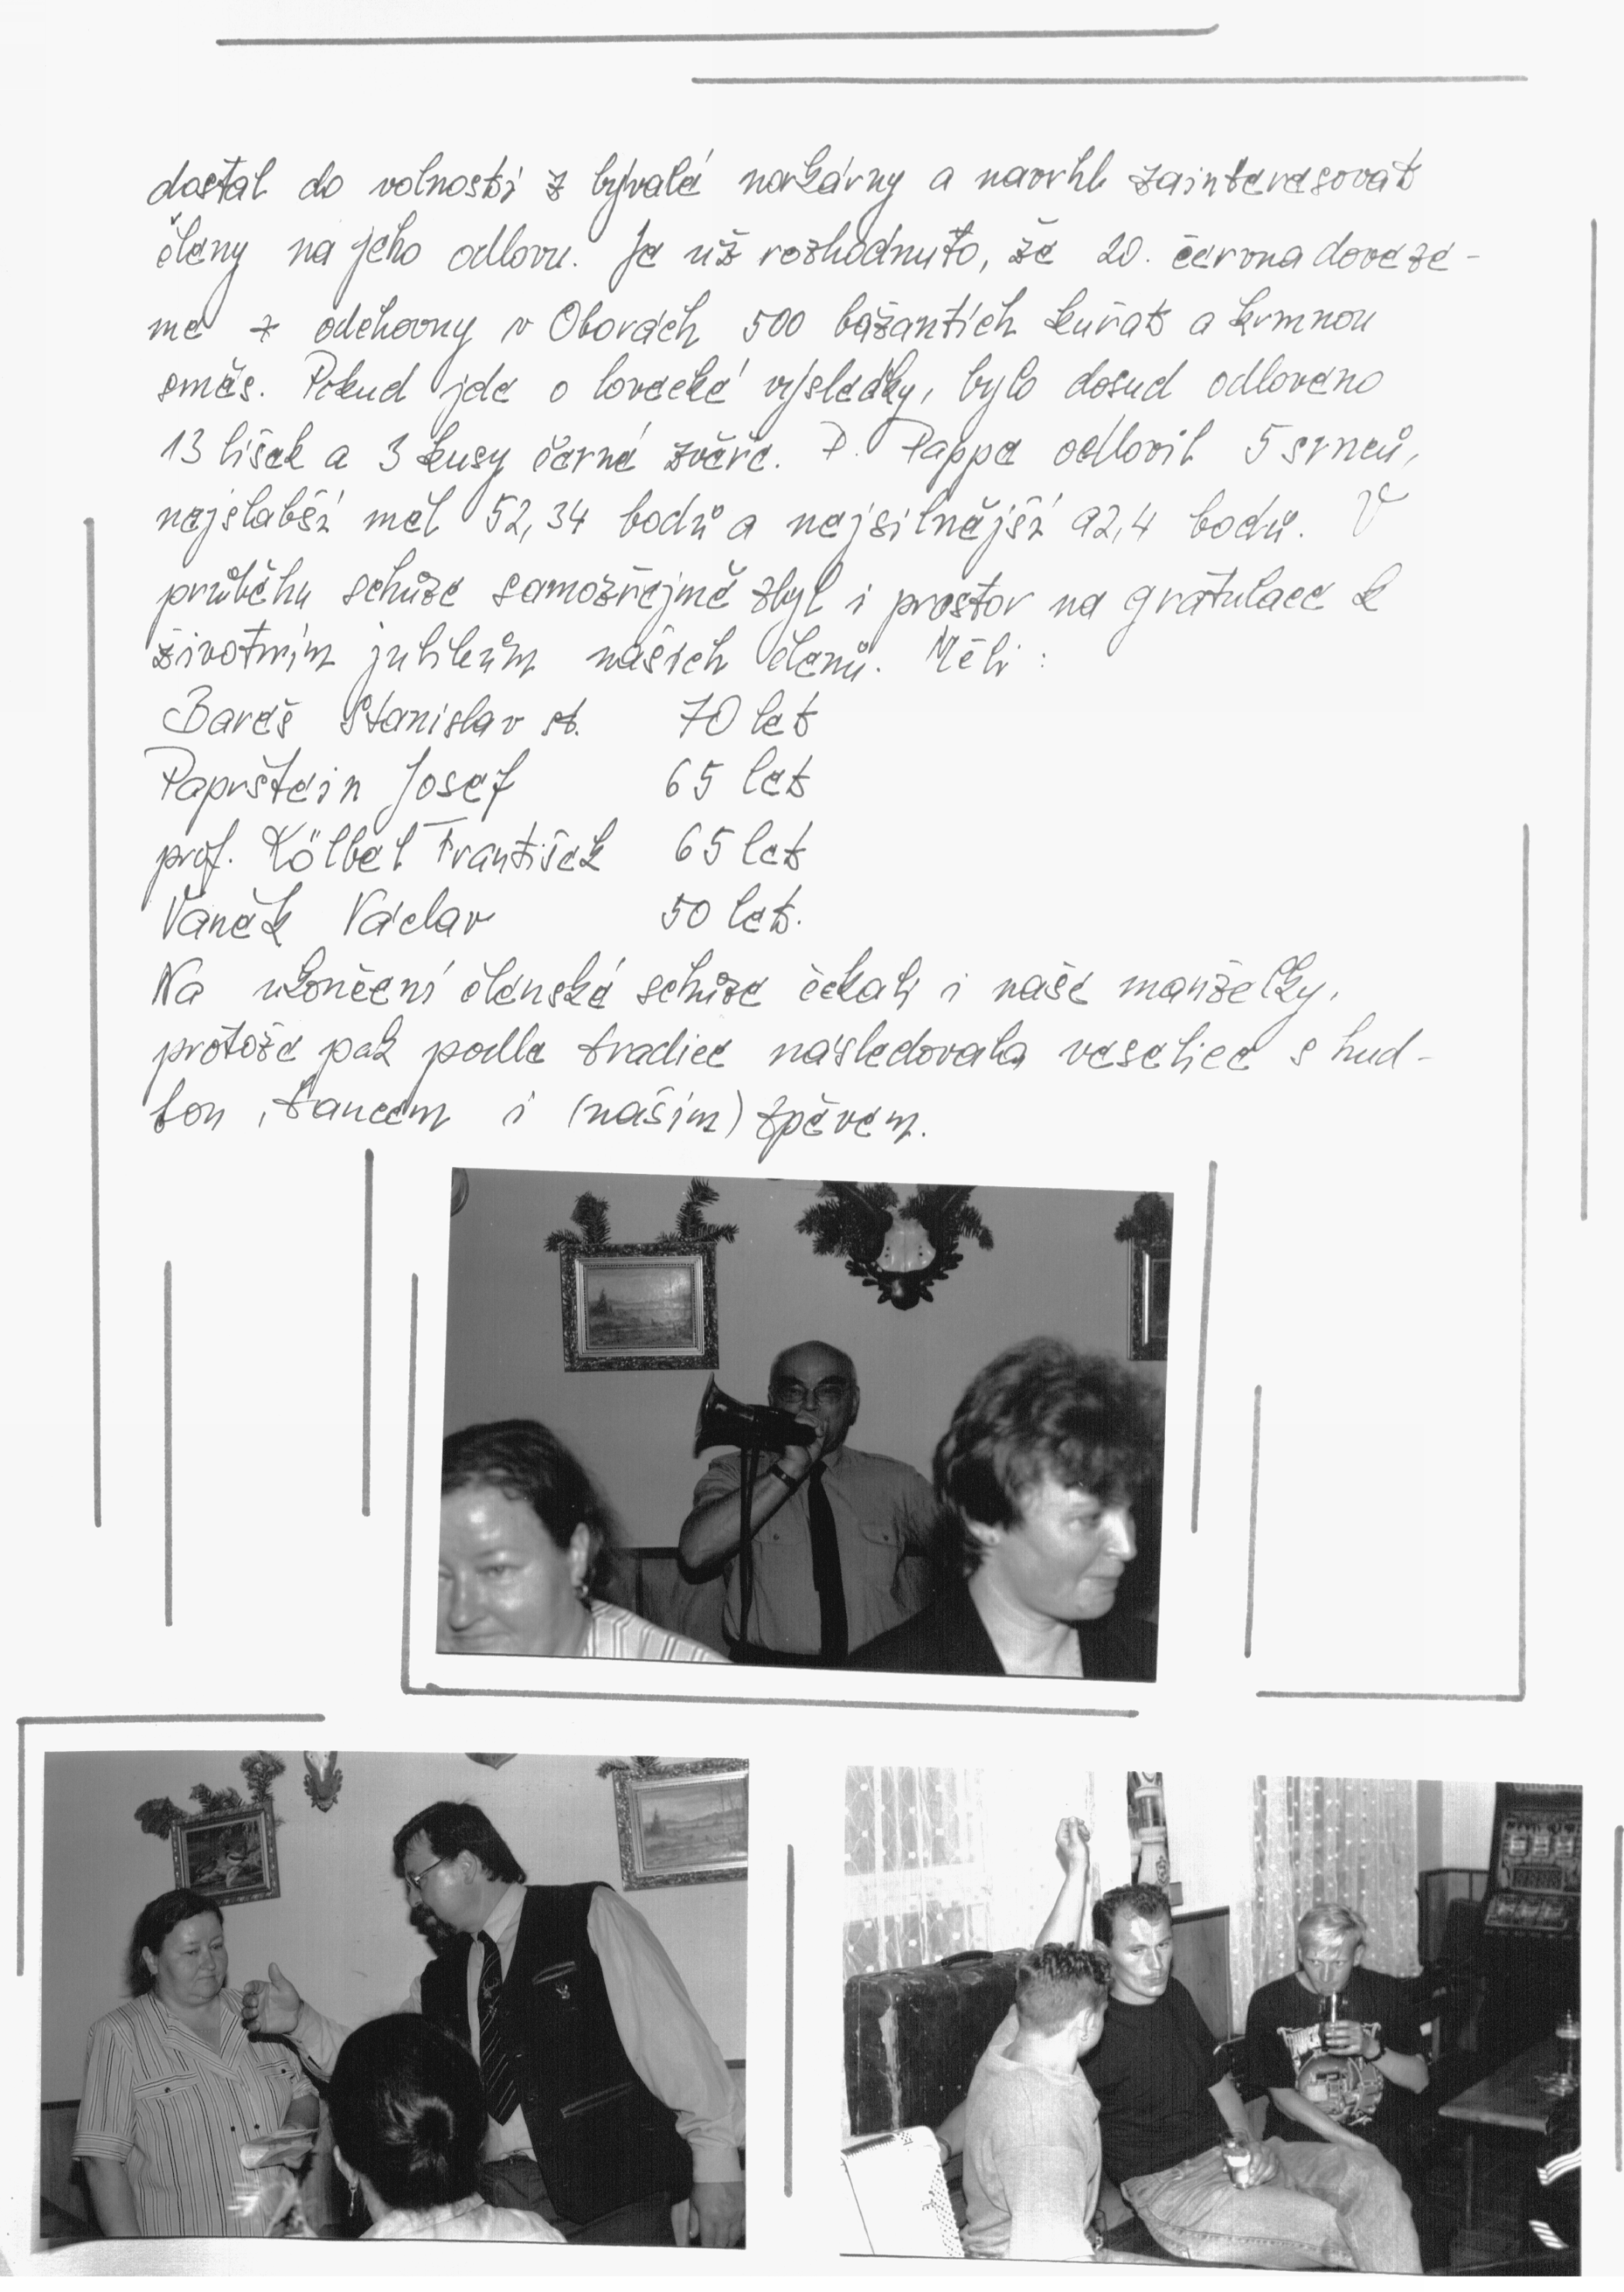 dostal do volnosti z bývalé norkárny a navrhl zainteresovat
členy na jeho odlovu. Je už rozhodnuto, že 20. června doveze-
me z odchovny v Oborách 500 bažantích kuřat a krmnou
směs. Pokud jde o lovecké výsledky, bylo dosud odloveno
13 lišek a 3 kusy černé zvěře. P. Pappe odlovil 5 srnců,
nejslabší měl 52,34 bodů a nejsilnější 92,4 bodů. V
průběhu schůze samozřejmě zbyl i prostor na gratulace k
životním jubileům našich členů. Měli :
Bareš Stanislav st. 70 let
Paprštein Josef 65 let
prof. Kölbel František 65 let
Vaněk Václav 50 let.
Na ukončení členské schůze čekali i naše manželky,
protože pak podle tradice následovala veselice s hud-
bou, tancem i (naším) zpěvem.